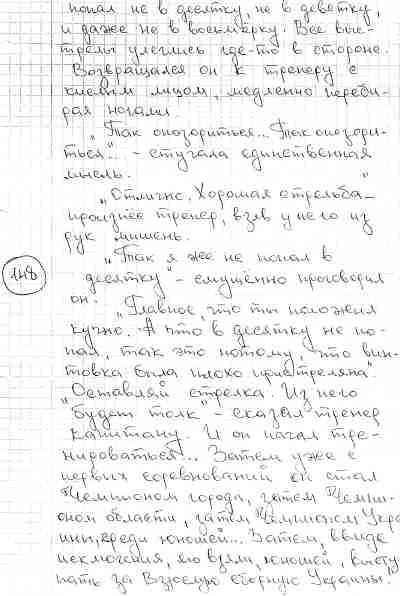 попал не в десятку, не в девятку,
и даже не в восьмёрку. Все выс-
трелы улеглись где-то в стороне.
Возвращался он к тренеру с
кислым лицом, медленно переби-
рая ногами.
„Так опозориться... Так опозори-
ться..." - стучала единственная
мысль.
„Отлично. Хорошая стрельба" -
произнёс тренер, взяв у него из
рук мишень.
„Так я же не попал в
десятку" - смущённо проговорил
он.
148
„Главное, что ты положил
кучно. А что в десятку не по-
пал, так это потому, что вин-
товка была плохо пристреляна".
„Оставляй стрелка. Из него
будет толк" - сказал тренер
капитану. И он начал тре-
нироваться... Затем уже с
первых соревнований он стал
Чемпионом города, затем Чемпи-
оном области, затем Чемпионом Укра
ины, среди юношей... Затем, ввиде
исключения, его взяли, юношей, высту
пать за Взрослую сборную Украины."